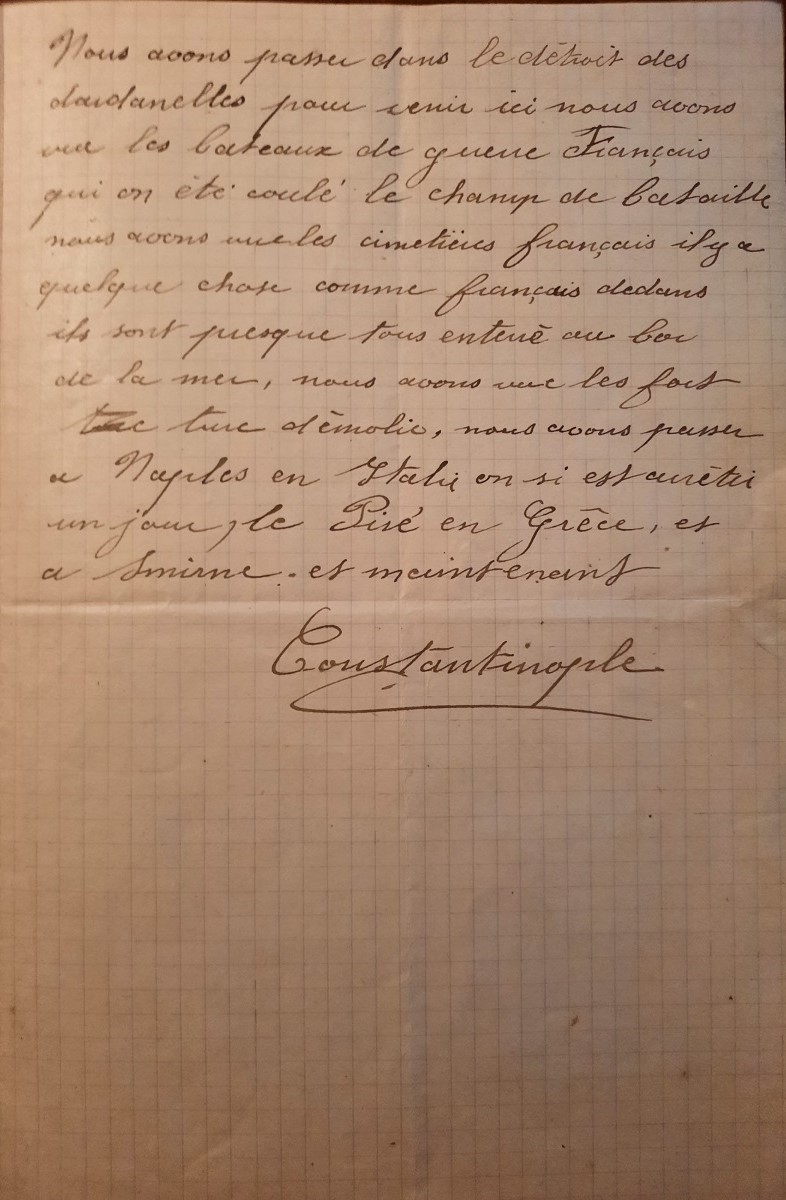 Nous avons passer dans le détroit des
dardanelles pour venir ici nous avons
vue les bateaux de guerre Français
qui on été coulé le champ de bataille
nous avons vue les cimetières français il y a
quelque chose comme français dedans
ils sont presque tous enterré au bor
de la mer, nous avons vue les fort
turc démolie, nous avons passer
a Naples en Italie on si est arrêter
un jour, le Piré en Grêce, et
a Smirne. et maintenant
Constantinople